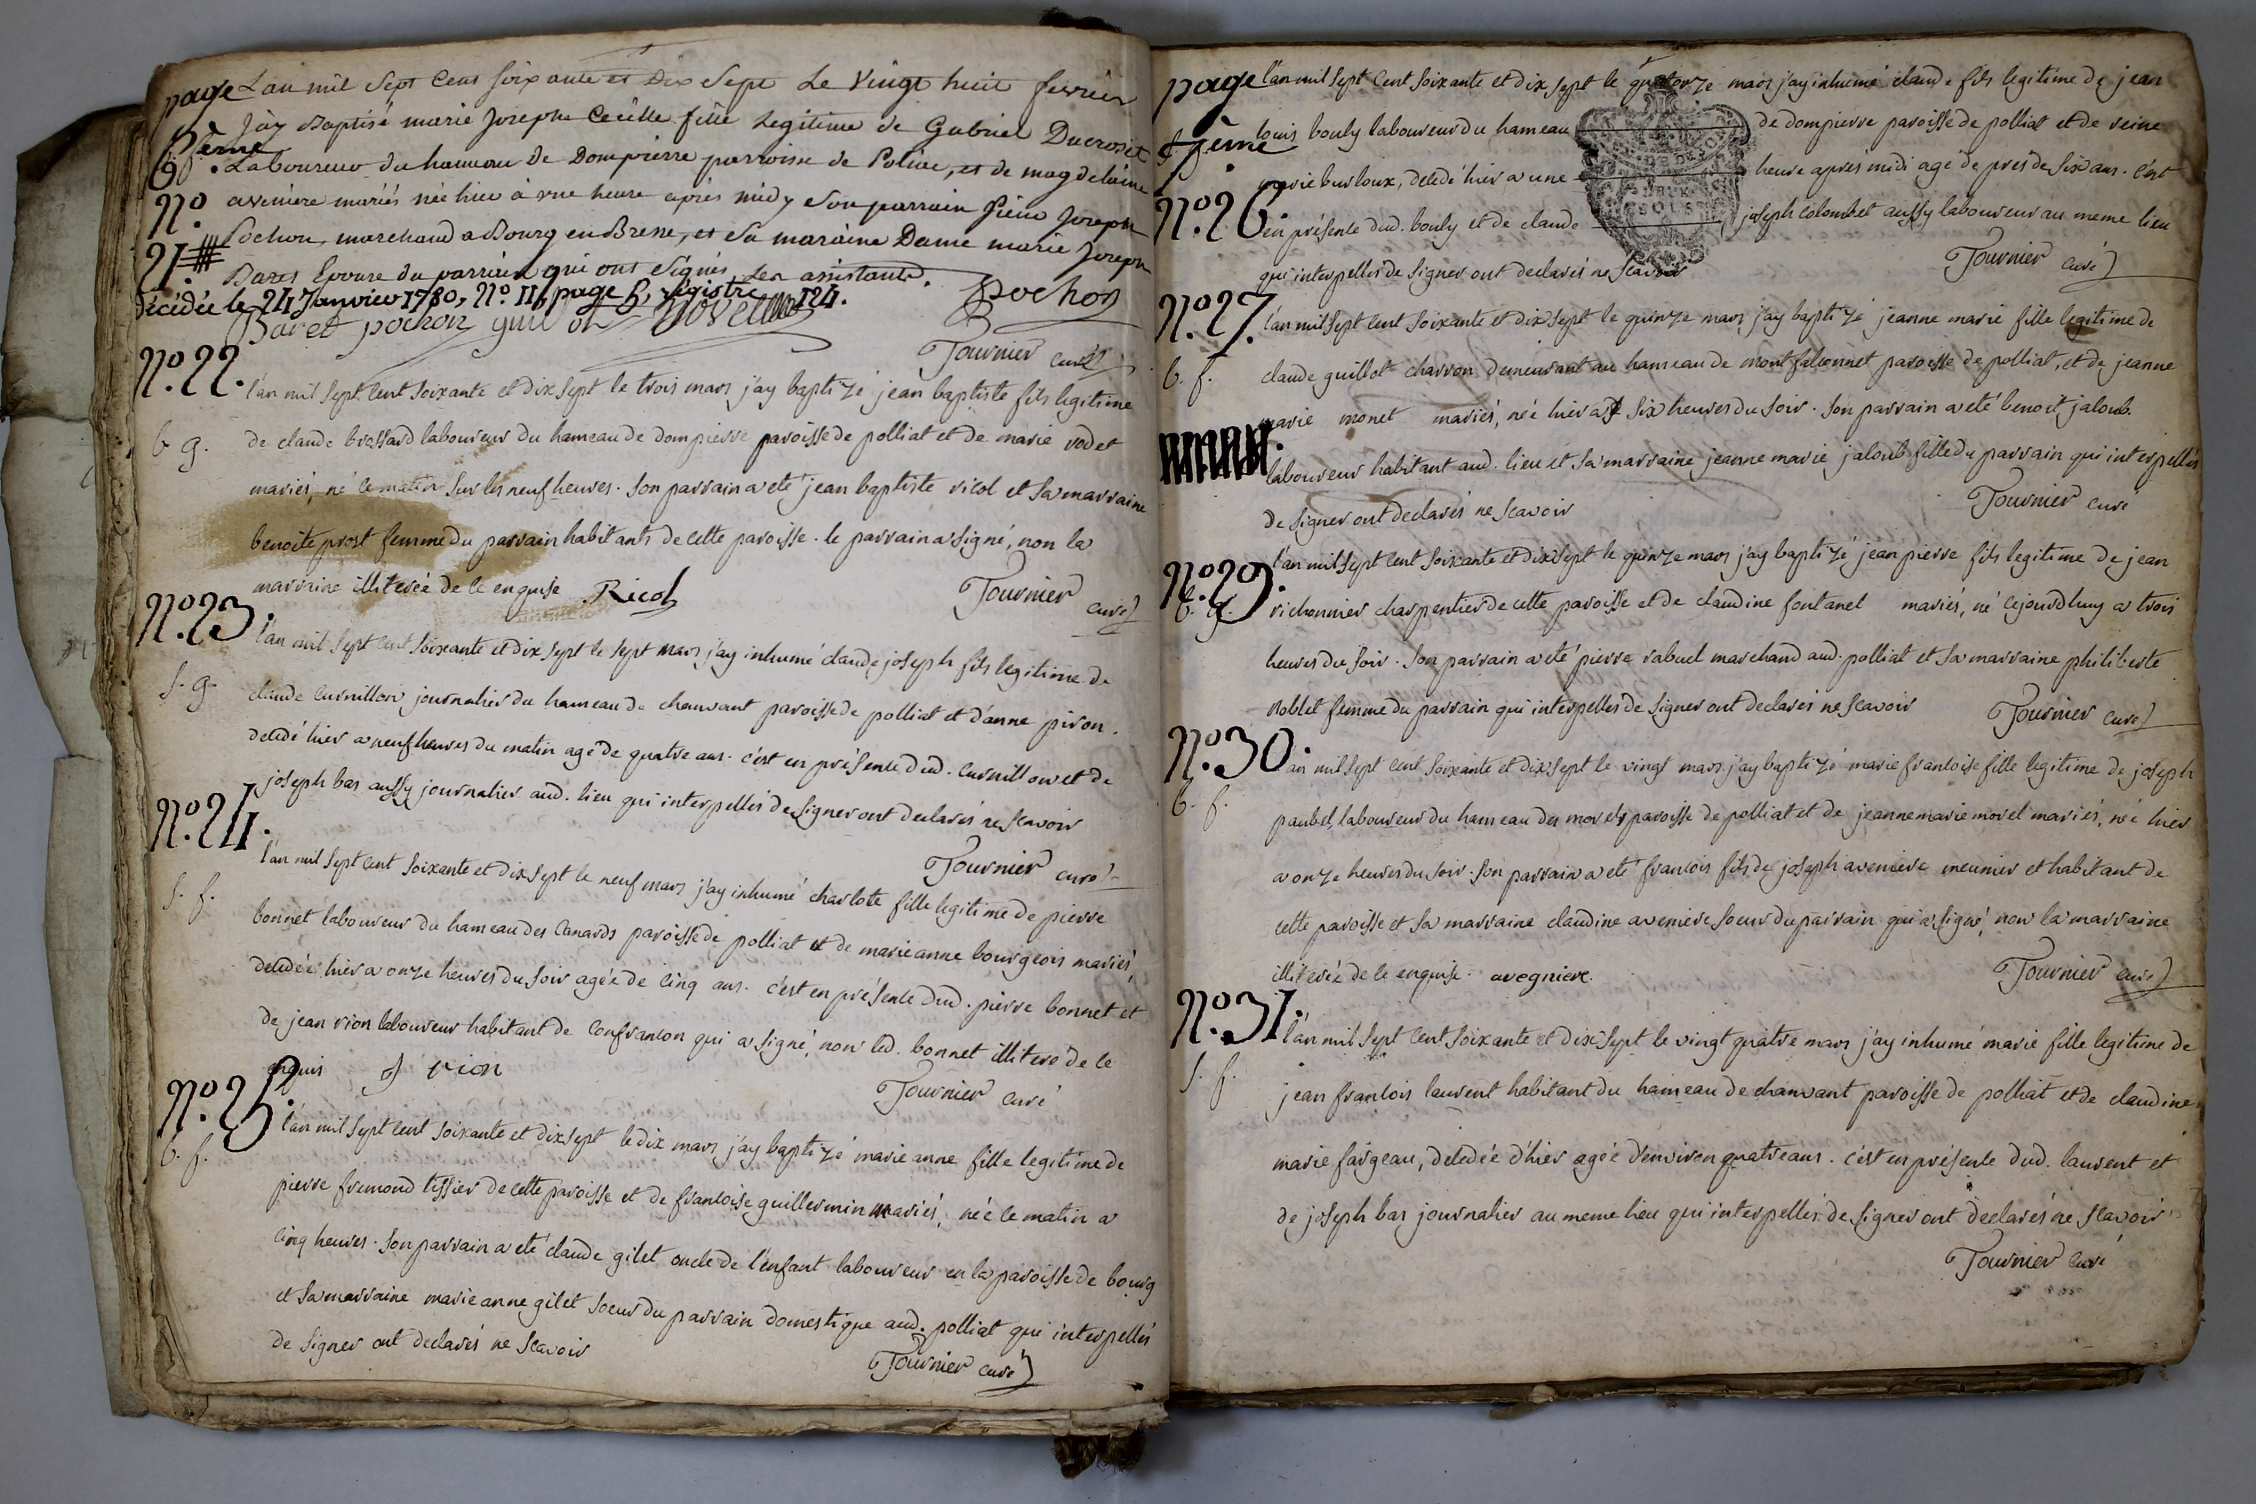 page L'an mil Sept Cens Soixante et Dix Sept Le Vingt huit fevrier
6ème J'ay Baptisé marie Josephe Cecille fille Legitime de Gabriel Ducroset
b f. Laboureur du hameau de Dompierre parroisse de Poliac, et de magdelaine
N° aveniere mariés née hier à une heure après midy Son parrain Joseph
21. Pochon, marchand a Bourg en Bresse, et Sa maraine Dame marie Joseph
Baret Epouse du parrain qui ont Signés
Décédée le 24 Janvier 1780, N° 11, page 5, registre 124.
Pochon
Baret pochon
Tournier curé
N° 22. l'an mil sept cent soixante et dix sept le trois mars j'ay baptizé jean baptiste fils legitime
b g. de claude brossard laboureur du hameau de dompierre paroisse de polliat et de marie rodet
mariés, né ce matin sur les neuf heures. son parrain a eté jean baptiste ricol et sa marraine
benoite prost femme du parrain habitants de cette paroisse. le parrain a signé, non la
marraine illiterée de ce enquise Ricol Tournier curé
N° 23. l'an mil sept cent soixante et dix sept le sept mars j'ay inhumé claude joseph fils legitime de
s. g. claude curnillon journalier du hameau de chanvant paroisse de polliat et d'anne piron.
decedé hier a neuf heures du matin agé de quatre ans. c'est en présence dud. curnillon et de
joseph bas aussy journalier aud. lieu qui interpellés de signer ont declarés ne scavoir
Tournier curé
N° 24. l'an mil sept cent soixante et dix sept le neuf mars j'ay inhumé charlote fille legitime de pierre
s. f. bonnet laboureur du hameau des canards paroisse de polliat et de marieanne bourgeois mariés,
decedée hier a onze heures du soir agée de cinq ans. c'est en présence dud. pierre bonnet et
de jean rion laboureur habitant de confrancon qui a signé, non led. bonnet illiteré de ce
enquis j rion
Tournier curé
N° 25. l'an mil sept cent soixante et dix sept le dix mars j'ay baptizé marieanne fille legitime de
b. f. pierre fremond tissier de cette paroisse et de francoise guillermin mariés, née ce matin a
cinq heures. son parrain a eté claude gilet oncle de l'enfant laboureur en la paroisse de bourg
et sa marraine marieanne gilet soeur du parrain domestique aud. polliat qui interpellés
de signer ont declarés ne scavoir
Tournier curé
page l'an mil sept cent soixante et dix sept le quatorze mars j'ay inhumé claude fils legitime de jean
7ème louis bouly laboureur du hameau de dompierre paroisse de polliat et de reine
marie burloux, decedé hier a une heure apres midi agé de pres de six ans. c'est
N° 26. en présence dud. bouly et de claude joseph colombet aussy laboureur au meme lieu
qui interpellés de signer ont declarés ne scavoir Tournier curé
N° 27. l'an mil sept cent soixante et dix sept le quinze mars j'ay baptizé jeanne marie fille legitime de
b. f. claude guillot charron demeurant au hameau de montfalconnet paroisse de polliat, et de jeanne
marie monet mariés, née hier a six heures du soir. son parrain a eté benoit jaloub
laboureur habitant aud. lieu et sa marraine jeanne marie jaloub fille du parrain qui interpellés
de signer ont declarés ne scavoir Tournier curé
N° 29. l'an mil sept cent soixante et dix sept le quinze mars j'ay baptizé jean pierre fils legitime de jean
b. g. richonnier charpentier de cette paroisse et de claudine fontanel mariés, né cejourdhuy a trois
heures du soir. son parrain a eté pierre rabuel marchand aud. polliat et sa marraine philiberte
noblet femme du parrain qui interpellés de signer ont declarés ne scavoir Tournier curé
N° 30. l'an mil sept cent soixante et dix sept le vingt mars j'ay baptizé marie francoise fille legitime de joseph
b. f. paubel, laboureur du hameau des morels paroisse de polliat et de jeannemarie morel mariés, née hier
a onze heures du soir. son parrain a eté francois fils de joseph aveniere meunier et habitant de
cette paroisse et sa marraine claudine aveniere soeur du parrain qui a signé, non la marraine
illiterée de ce enquise. avegniere. Tournier curé
N° 31. l'an mil sept cent soixante et dix sept le vingt quatre mars j'ay inhumé marie fille legitime de
s. f. jean francois laurent habitant du hameau de chanvant paroisse de polliat et de claudine
marie fargeau, decedée d'hier agée d'environ quatre ans. c'est en présence dud. laurent et
de joseph bas journalier au meme lieu qui interpellés de signer ont declarés ne scavoir
Tournier curé